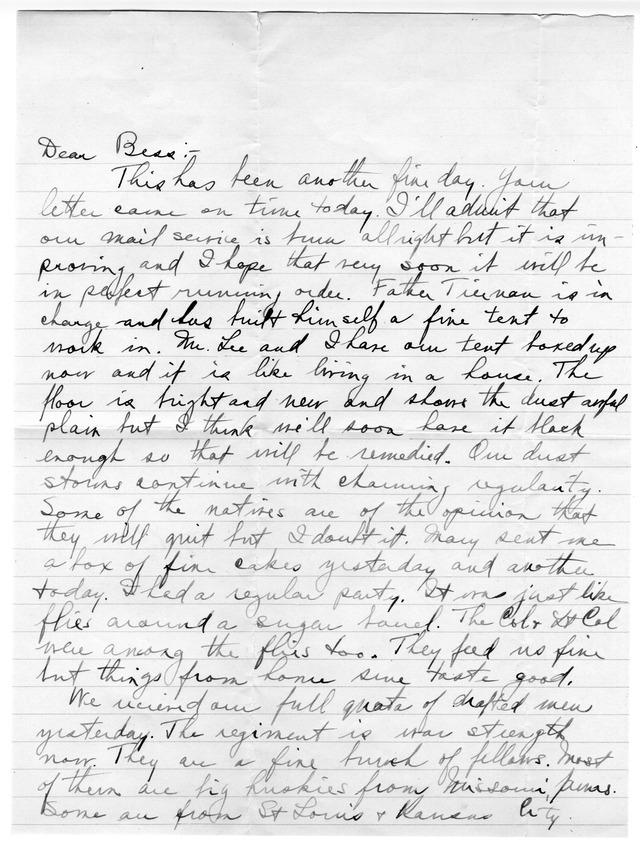 Dear Bess:-
This has been another fine day. Your
letter came on time today. I'll admit that
our mail service is bum allright but it is im-
proving and I hope that very soon it will be
in perfect running order. Father Tiernan is in
charge and has built himself a fine tent to
work in. Mr. Lee and I have our tent boxed up
now and it is like living in a house. The
floor is bright and new and shows the dust awful
plain but I think we'll soon have it black
enough so that will be remedied. Our dust
storms continue with charming regularity.
Some of the natives are of the opinion that
they will quit but I doubt it. Mary sent me
a box of fine cakes yesterday and another
today. I had a regular party. It was just like
flies around a sugar barrel. The Col & Lt Col
were among the flies too. They feed us fine
but things from home sure taste good.
We received our full quota of drafted men
yesterday. The regiment is war strength
now. They are a fine bunch of fellows. Most
of them are big huskies from Missouri farms.
Some are from St Louis & Kansas City.